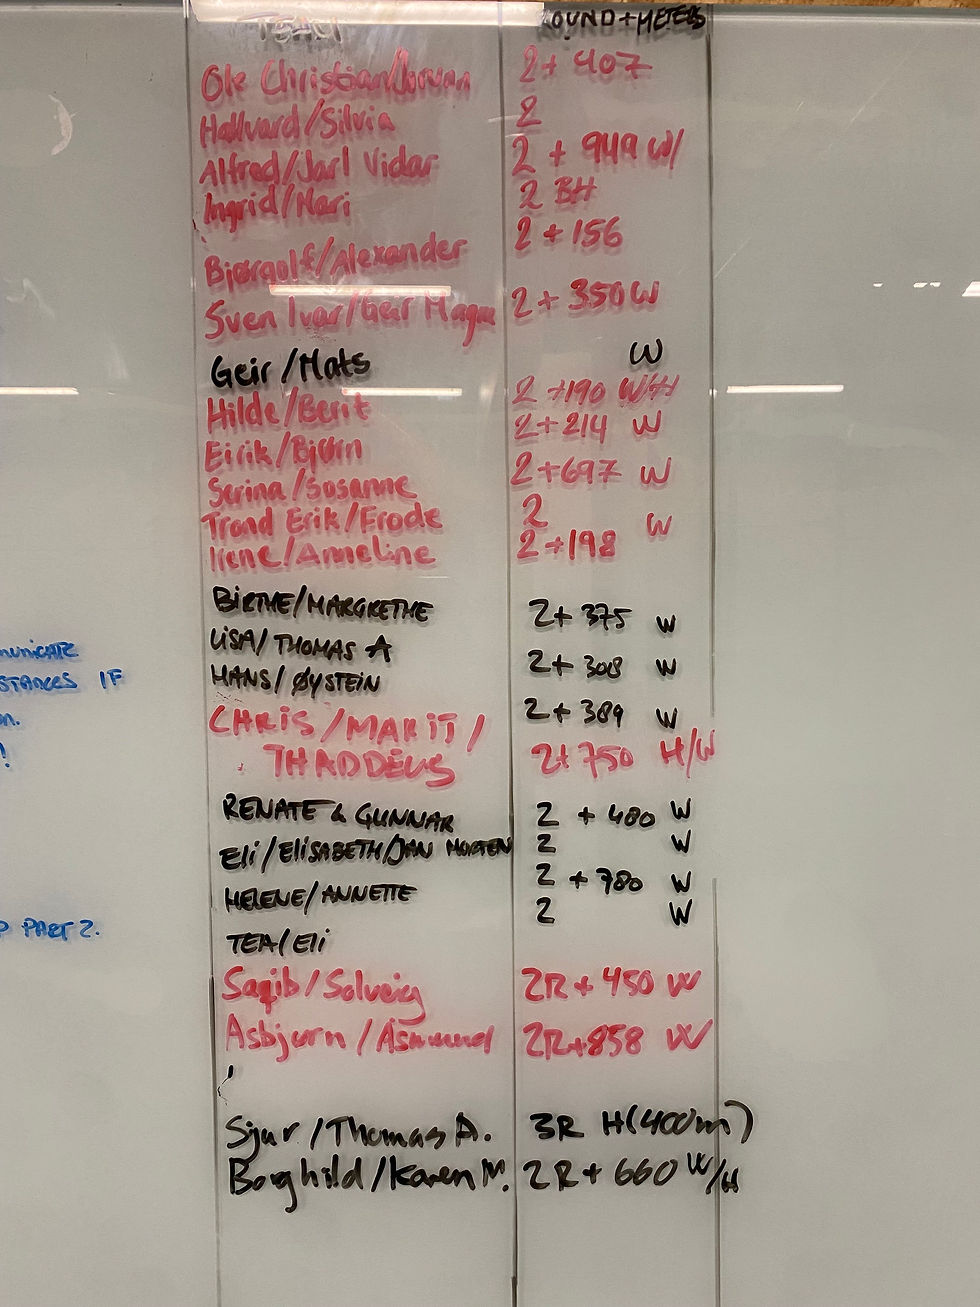 TEAM ROUND + METERS
Ole Christian/Jorunn 2 + 407
Hallvard/Silvia 2
Alfred/Jarl Vidar 2 + 949 W/
Ingrid/Mari 2 BH
Bjørgolf/Alexander 2 + 156
Sven Ivar/Geir Magne 2 + 350 W
Geir/Mats W
Hilde/Berit 2 + 190 W/H
Eirik/Bjørn 2 + 214 W
Serina/Sosanne 2 + 697 W
Trond Erik/Frode 2 W
Irene/Anneline 2 + 198
BIRTHE/MARGRETHE 2 + 375 W
LISA/THOMAS A 2 + 308 W
HANS/ØYSTEIN 2 + 389 W
CHRIS/MARIT/
THADDEUS 2 + 750 H/W
RENATE & GUNNAR 2 + 480 W
Eli/ELISABETH/JAN MORTEN 2 W
HELENE/ANNETTE 2 + 780 W
TEA/Eli 2 W
Saqib/Solveig 2R + 450 W
Asbjørn/Åsmund 2R + 858 W
Sjur/Thomas A. 3R H(400m)
Borghild/Karen M. 2R + 660 W/H
STANCES IF
!
PART 2.